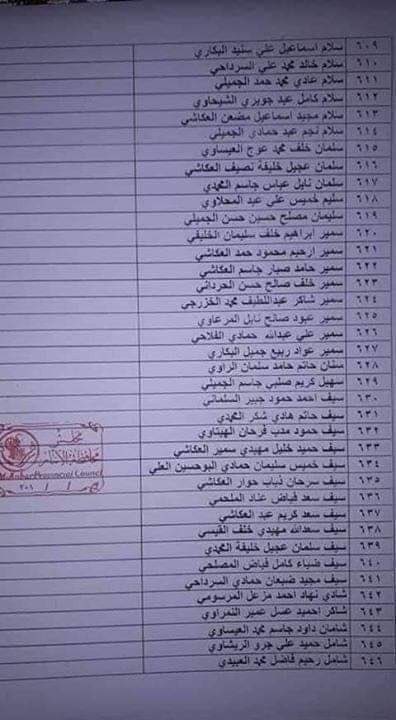 ٦٠٩ سلام اسماعيل علي سنيد البكاري
٦١٠ سلام خالد محمد علي السرداحي
٦١١ سلام عادي محمد حمد الجميلي
٦١٢ سلام كامل عبد جوبري الشيحاوي
٦١٣ سلام مجيد اسماعيل مضعن العكاشي
٦١٤ سلام نجم عبد حمادي الجميلي
٦١٥ سلمان خلف محمد عوج العيساوي
٦١٦ سلمان عجيل خليفة نصيف العكاشي
٦١٧ سلمان نايل عباس جاسم المحمدي
٦١٨ سليم خميس علي عبد المحلاوي
٦١٩ سليمان مصلح حسين حسن الجميلي
٦٢٠ سمير ابراهيم خلف سليمان الخليفي
٦٢١ سمير ارحيم محمود حمد العكاشي
٦٢٢ سمير حامد صبار جاسم العكاشي
٦٢٣ سمير خلف صالح حسن الحرداني
٦٢٤ سمير شاكر عبداللطيف محمد الخزرجي
٦٢٥ سمير عبود صالح نايل المرعاوي
٦٢٦ سمير علي عبدالله حمادي الفلاحي
٦٢٧ سمير عواد ربيع جميل البكاري
٦٢٨ سنان حاتم حامد سلمان الراوي
٦٢٩ سهيل كريم صلبي جاسم الجميلي
٦٣٠ سيف احمد حمود جبير السلماني
٦٣١ سيف حاتم هادي شكر المحمدي
٦٣٢ سيف حمود مدب فرحان الهيتاوي
٦٣٣ سيف حميد خليل مهيدي سمير العكاشي
٦٣٤ سيف خميس سليمان حمادي البوحسين العلي
٦٣٥ سيف سرحان ذياب حوار العكاشي
٦٣٦ سيف سعد فياض عناد الملحمي
٦٣٧ سيف سعد كريم عبد العكاشي
٦٣٨ سيف سعدالله مهيدي خلف القيسي
٦٣٩ سيف سلمان عجيل خليفة المحمدي
٦٤٠ سيف ضياء كامل فياض المصلحي
٦٤١ سيف مجيد ضبعان حمادي السرداحي
٦٤٢ شادي نهاد احمد مزعل المرسومي
٦٤٣ شاكر احميد عسل عمير النمراوي
٦٤٤ شامان داود جاسم محمد العيساوي
٦٤٥ شامل حميد علي جرو الريشاوي
٦٤٦ شامل رحيم فاضل محمد العبيدي
مجلس
محافظة الانبار
Anbar Provincial Council